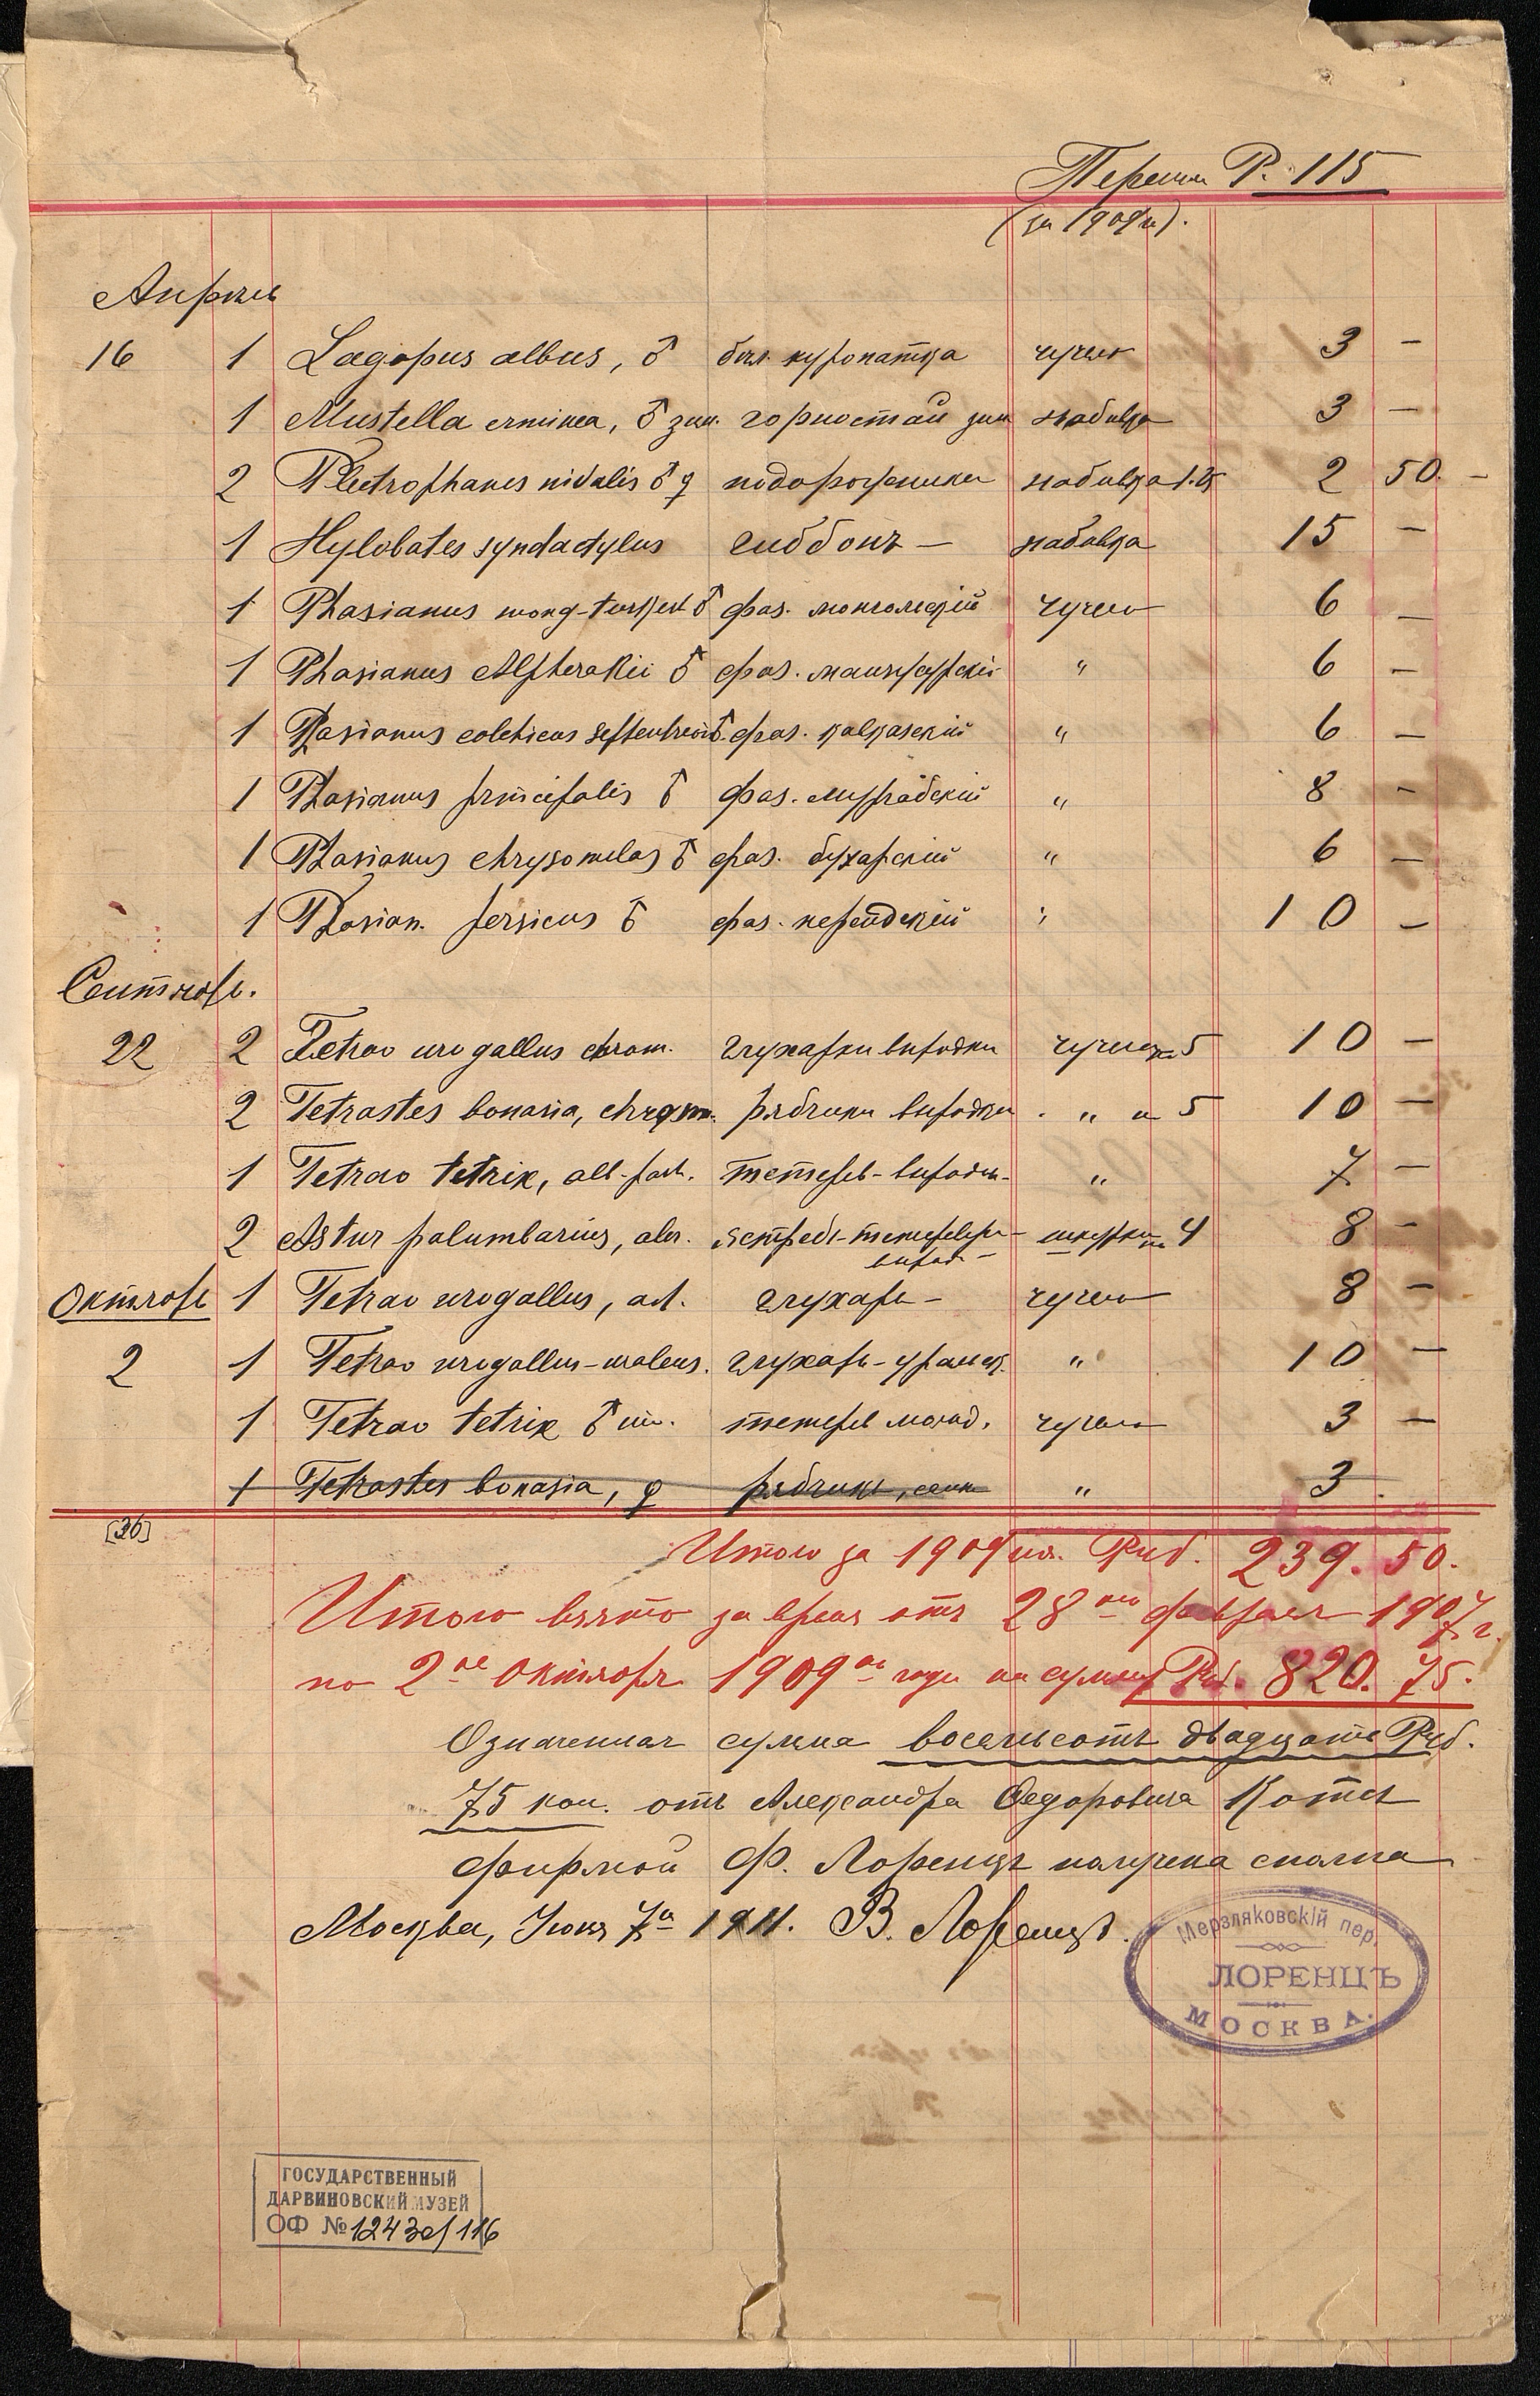 Р. 115
(за 1909 г.).
Апрѣль
16 1 Lagopus albus, ♂ бѣл. куропатка чучело 3 —
1 Mustella erminea, ♂ зим. горностай зим набивка 3 —
2 Plectrophanes nivalis ♂ ♀ подорожники набивка 1.25 2 50. —
1 Hylobates syndactylus гиббонъ — набивка 15 —
1 Phasianus mong-turkest ♂ фаз. монгольскій чучело 6 —
1 Phasianus Alpherakii ♂ фаз. манчжурскій " 6 —
1 Phasianus colchicus septentrion ♂. фаз. кавказскій " 6 —
1 Phasianus principalis ♂ фаз. мургабскій " 8 -
1 Phasianus chrysomelas ♂ фаз. бухарскій " 6 —
1 Phasian. persicus ♂ фаз. персидскій " 10 —
Сентябрь.
22 2 Tetrao urogallus chrom. глухарки выродки чучела 5 10 —
2 Tetrastes bonasia, chrom. рябчики выродки " 5 10 —
1 Tetrao tetrix, alb-part. тетерев-выродк- " 7 —
2 Astur palumbarius, alb. ястреб- шкурки 4 8 -
вырод —
Октябрь 1 Tetrao urogallus, ad. глухарь — чучело 8 —
2 1 Tetrao urogallus-uralens. глухарь-уральск. " 10 —
1 Tetrao tetrix ♂ juv. тетерев молод. чучело 3 —
1 Tetrastes bonasia, ♀ рябчикъ, самк " 3.
[36]
Итого за 1909 Руб. 239. 50.
Итого взято за время отъ 28го февраля 1907 г.
по 2ое Октября 1909го года на сумму Руб. 820. 75.
Означенная сумма восемьсотъ двадцать Руб.
75 коп. отъ Александра Ѳедоровича Котсъ
фирмой Ф. Лоренцъ получена сполна
Москва, 7го 1911. В. Лоренцъ.
Мерзляковскій пер.
ЛОРЕНЦЪ
МОСКВА.
ГОСУДАРСТВЕННЫЙ
ДАРВИНОВСКИЙ МУЗЕЙ
ОФ № 12430/116